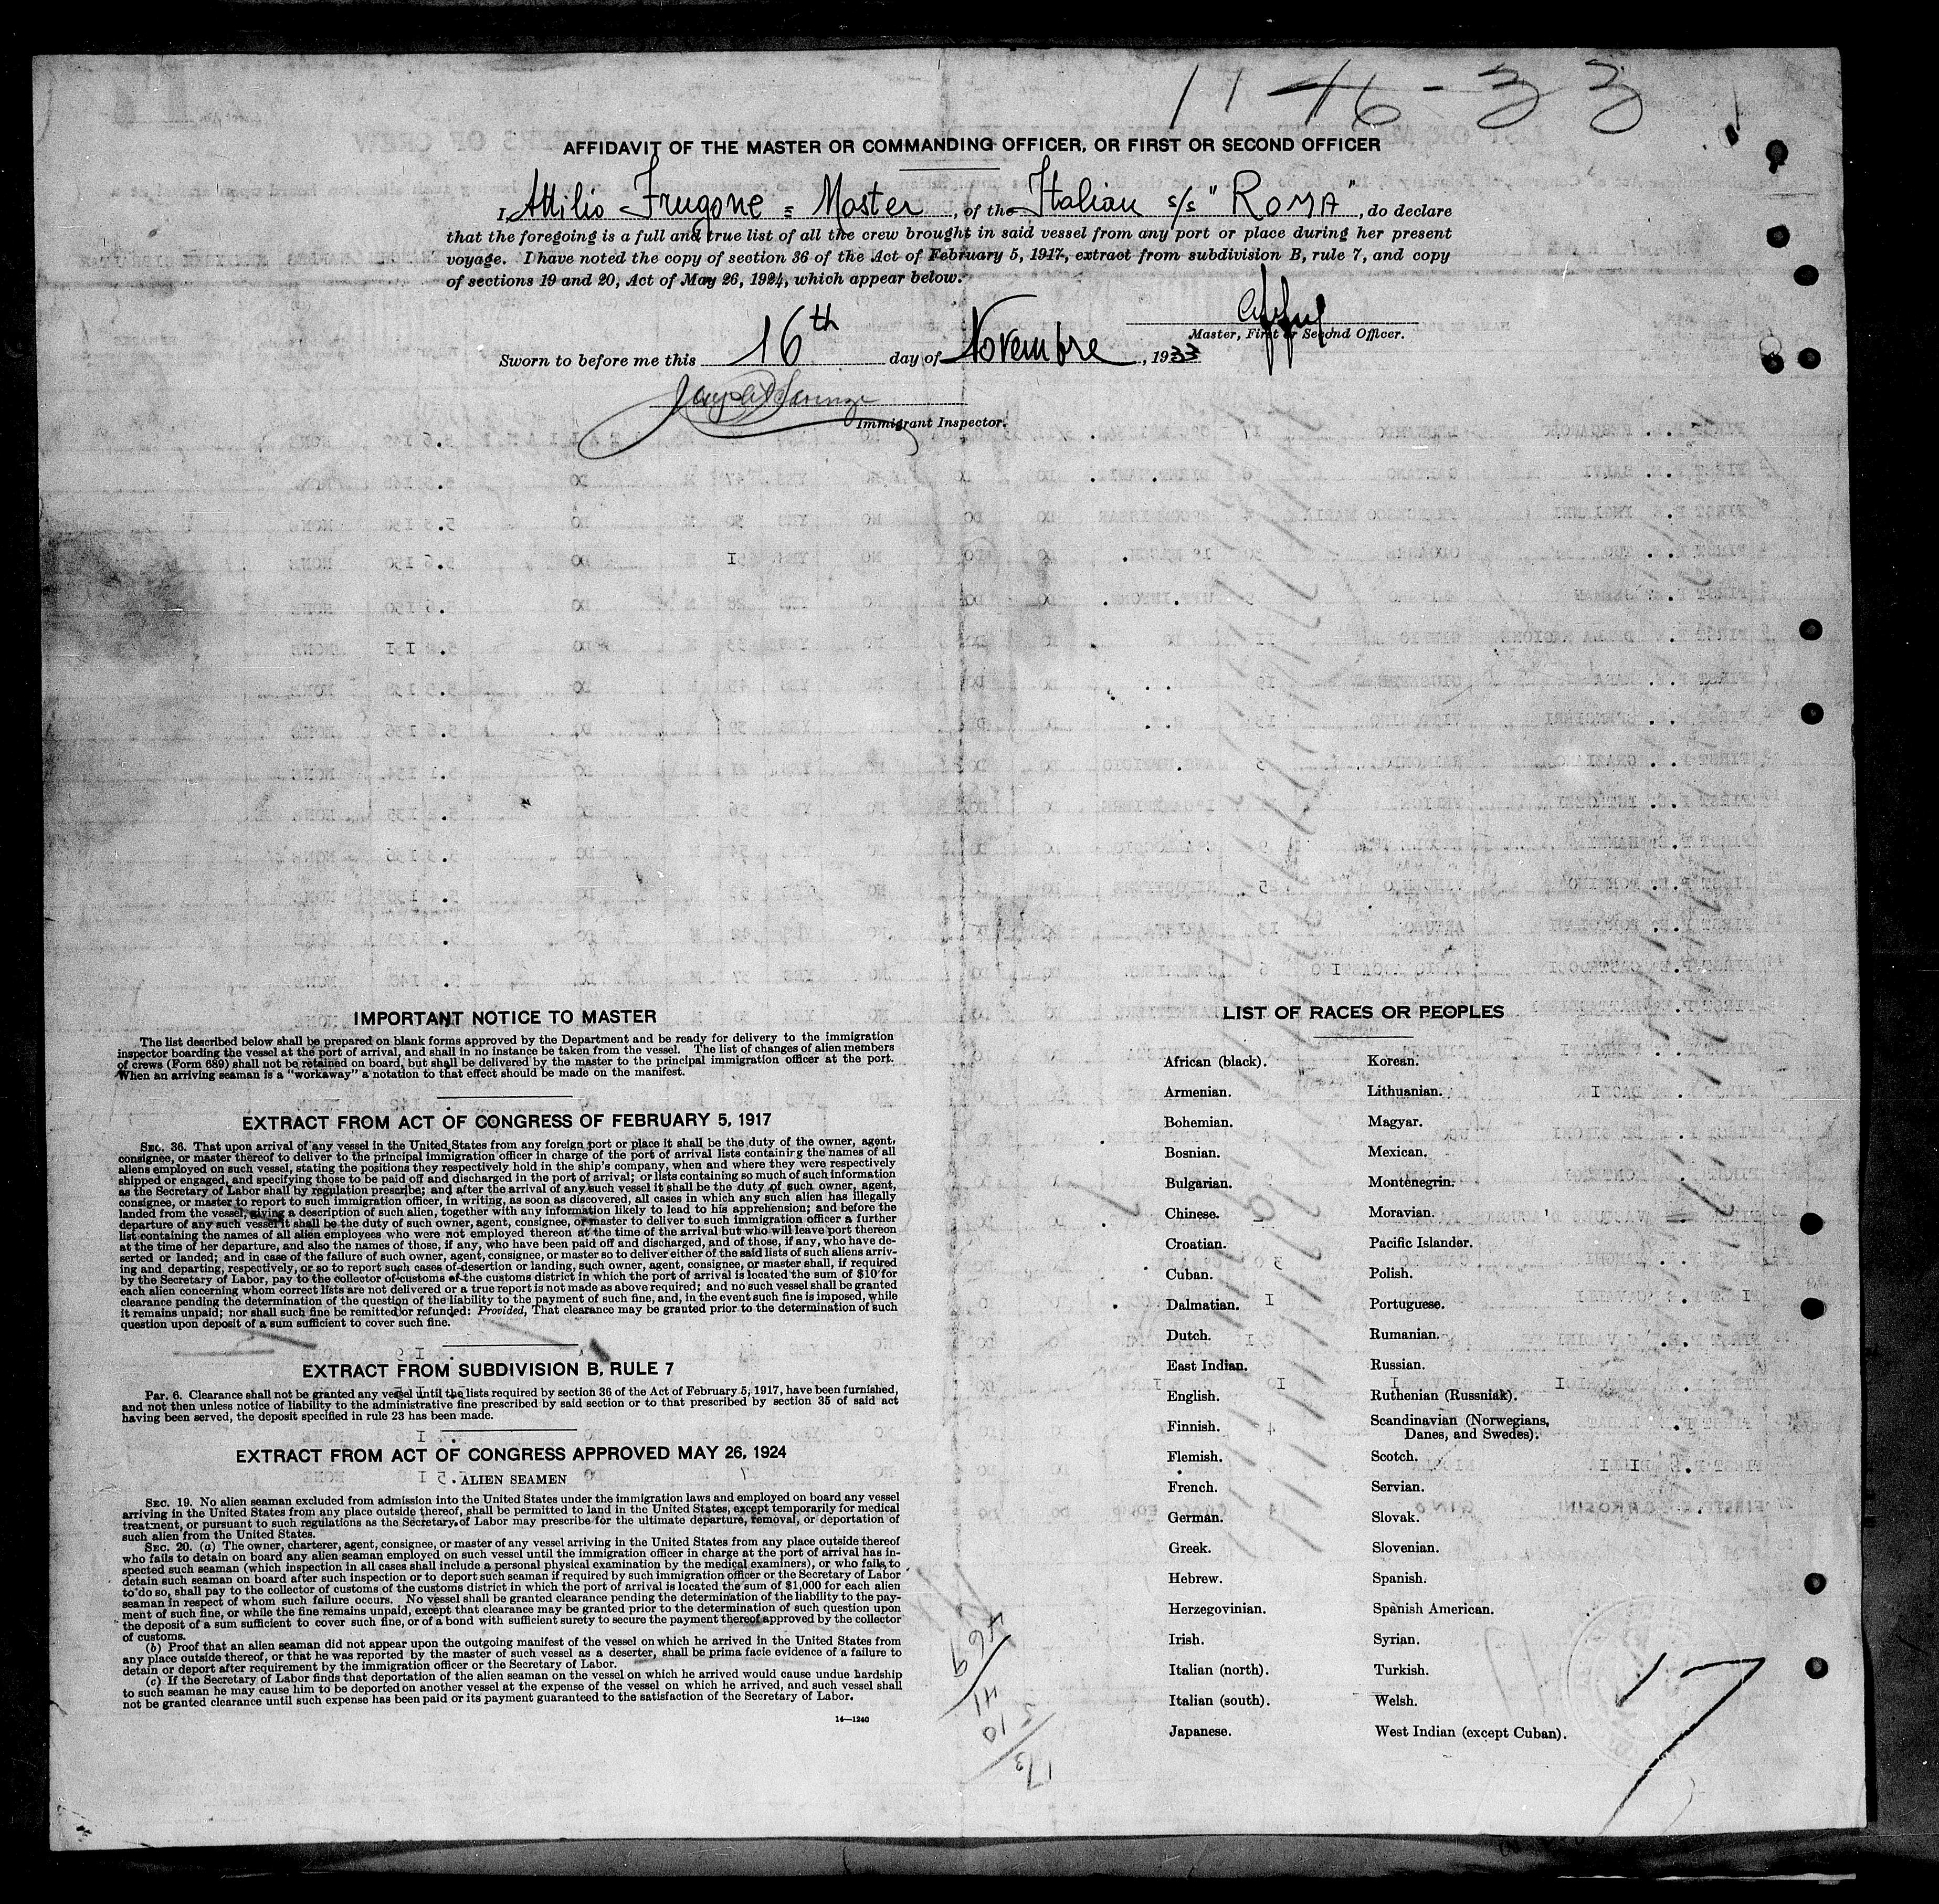 11-16-33
AFFIDAVIT OF THE MASTER OR COMMANDING OFFICER, OR FIRST OR SECOND OFFICER
I, Attilio Frugone = Master, of the Italian s/s "ROMA", do declare
that the foregoing is a full and true list of all the crew brought in said vessel from any port or place during her present
voyage. I have noted the copy of section 36 of the Act of February 5, 1917, extract from subdivision B, rule 7, and copy
of sections 19 and 20, Act of May 26, 1924, which appear below.
Master, First or Second Officer.
Sworn to before me this 16th day of Novembre, 1933
Immigrant Inspector.
IMPORTANT NOTICE TO MASTER
The list described below shall be prepared on blank forms approved by the Department and be ready for delivery to the immigration
inspector boarding the vessel at the port of arrival, and shall in no instance be taken from the vessel. The list of changes of alien members
of crews (Form 689) shall not be retained on board, but shall be delivered by the master to the principal immigration officer at the port.
When an arriving seaman is a "workaway" a notation to that effect should be made on the manifest.
EXTRACT FROM ACT OF CONGRESS OF FEBRUARY 5, 1917
SEC. 36. That upon arrival of any vessel in the United States from any foreign port or place it shall be the duty of the owner, agent,
consignee, or master thereof to deliver to the principal immigration officer in charge of the port of arrival lists containing the names of all
aliens employed on such vessel, stating the positions they respectively hold in the ship's company, when and where they were respectively
shipped or engaged, and specifying those to be paid off and discharged in the port of arrival; or lists containing so much of such information
as the Secretary of Labor shall by regulation prescribe; and after the arrival of any such vessel it shall be the duty of such owner, agent,
consignee, or master to report to such immigration officer, in writing, as soon as discovered, all cases in which any such alien has illegally
landed from the vessel, giving a description of such alien, together with any information likely to lead to his apprehension; and before the
departure of any such vessel it shall be the duty of such owner, agent, consignee, or master to deliver to such immigration officer a further
list containing the names of all alien employees who were not employed thereon at the time of the arrival but who will leave port thereon
at the time of her departure, and also the names of those, if any, who have been paid off and discharged, and of those, if any, who have de-
serted or landed; and in case of the failure of such owner, agent, consignee, or master so to deliver either of the said lists of such aliens arriv-
ing and departing, respectively, or so to report such cases of desertion or landing, such owner, agent, consignee, or master shall, if required
by the Secretary of Labor, pay to the collector of customs of the customs district in which the port of arrival is located the sum of $10 for
each alien concerning whom correct lists are not delivered or a true report is not made as above required; and no such vessel shall be granted
clearance pending the determination of the question of the liability to the payment of such fine, and, in the event such fine is imposed, while
it remains unpaid; nor shall such fine be remitted or refunded: Provided, That clearance may be granted prior to the determination of such
question upon deposit of a sum sufficient to cover such fine.
EXTRACT FROM SUBDIVISION B, RULE 7
Par. 6. Clearance shall not be granted any vessel until the lists required by section 36 of the Act of February 5, 1917, have been furnished,
and not then unless notice of liability to the administrative fine prescribed by said section or to that prescribed by section 35 of said act
having been served, the deposit specified in rule 23 has been made.
EXTRACT FROM ACT OF CONGRESS APPROVED MAY 26, 1924
ALIEN SEAMEN
SEC. 19. No alien seaman excluded from admission into the United States under the immigration laws and employed on board any vessel
arriving in the United States from any place outside thereof, shall be permitted to land in the United States, except temporarily for medical
treatment, or pursuant to such regulations as the Secretary of Labor may prescribe for the ultimate departure, removal, or deportation of
such alien from the United States.
SEC. 20. (a) The owner, charterer, agent, consignee, or master of any vessel arriving in the United States from any place outside thereof
who fails to detain on board any alien seaman employed on such vessel until the immigration officer in charge at the port of arrival has in-
spected such seaman (which inspection in all cases shall include a personal physical examination by the medical examiners), or who fails to
detain such seaman on board after such inspection or to deport such seaman if required by such immigration officer or the Secretary of Labor
to do so, shall pay to the collector of customs of the customs district in which the port of arrival is located the sum of $1,000 for each alien
seaman in respect of whom such failure occurs. No vessel shall be granted clearance pending the determination of the liability to the pay-
ment of such fine, or while the fine remains unpaid, except that clearance may be granted prior to the determination of such question upon
the deposit of a sum sufficient to cover such fine, or of a bond with sufficient surety to secure the payment thereof approved by the collector
of customs.
(b) Proof that an alien seaman did not appear upon the outgoing manifest of the vessel on which he arrived in the United States from
any place outside thereof, or that he was reported by the master of such vessel as a deserter, shall be prima facie evidence of a failure to
detain or deport after requirement by the immigration officer or the Secretary of Labor.
(c) If the Secretary of Labor finds that deportation of the alien seaman on the vessel on which he arrived would cause undue hardship
to such seaman he may cause him to be deported on another vessel at the expense of the vessel on which he arrived, and such vessel shall
not be granted clearance until such expense has been paid or its payment guaranteed to the satisfaction of the Secretary of Labor.
14—1240
LIST OF RACES OR PEOPLES
African (black).
Armenian.
Bohemian.
Bosnian.
Bulgarian.
Chinese.
Croatian.
Cuban.
Dalmatian.
Dutch.
East Indian.
English.
Finnish.
Flemish.
French.
German.
Greek.
Hebrew.
Herzegovinian.
Irish.
Italian (north).
Italian (south).
Japanese.
Korean.
Lithuanian.
Magyar.
Mexican.
Montenegrin.
Moravian.
Pacific Islander.
Polish.
Portuguese.
Rumanian.
Russian.
Ruthenian (Russniak).
Scandinavian (Norwegians,
Danes, and Swedes).
Scotch.
Servian.
Slovak.
Slovenian.
Spanish.
Spanish American.
Syrian.
Turkish.
Welsh.
West Indian (except Cuban).
17